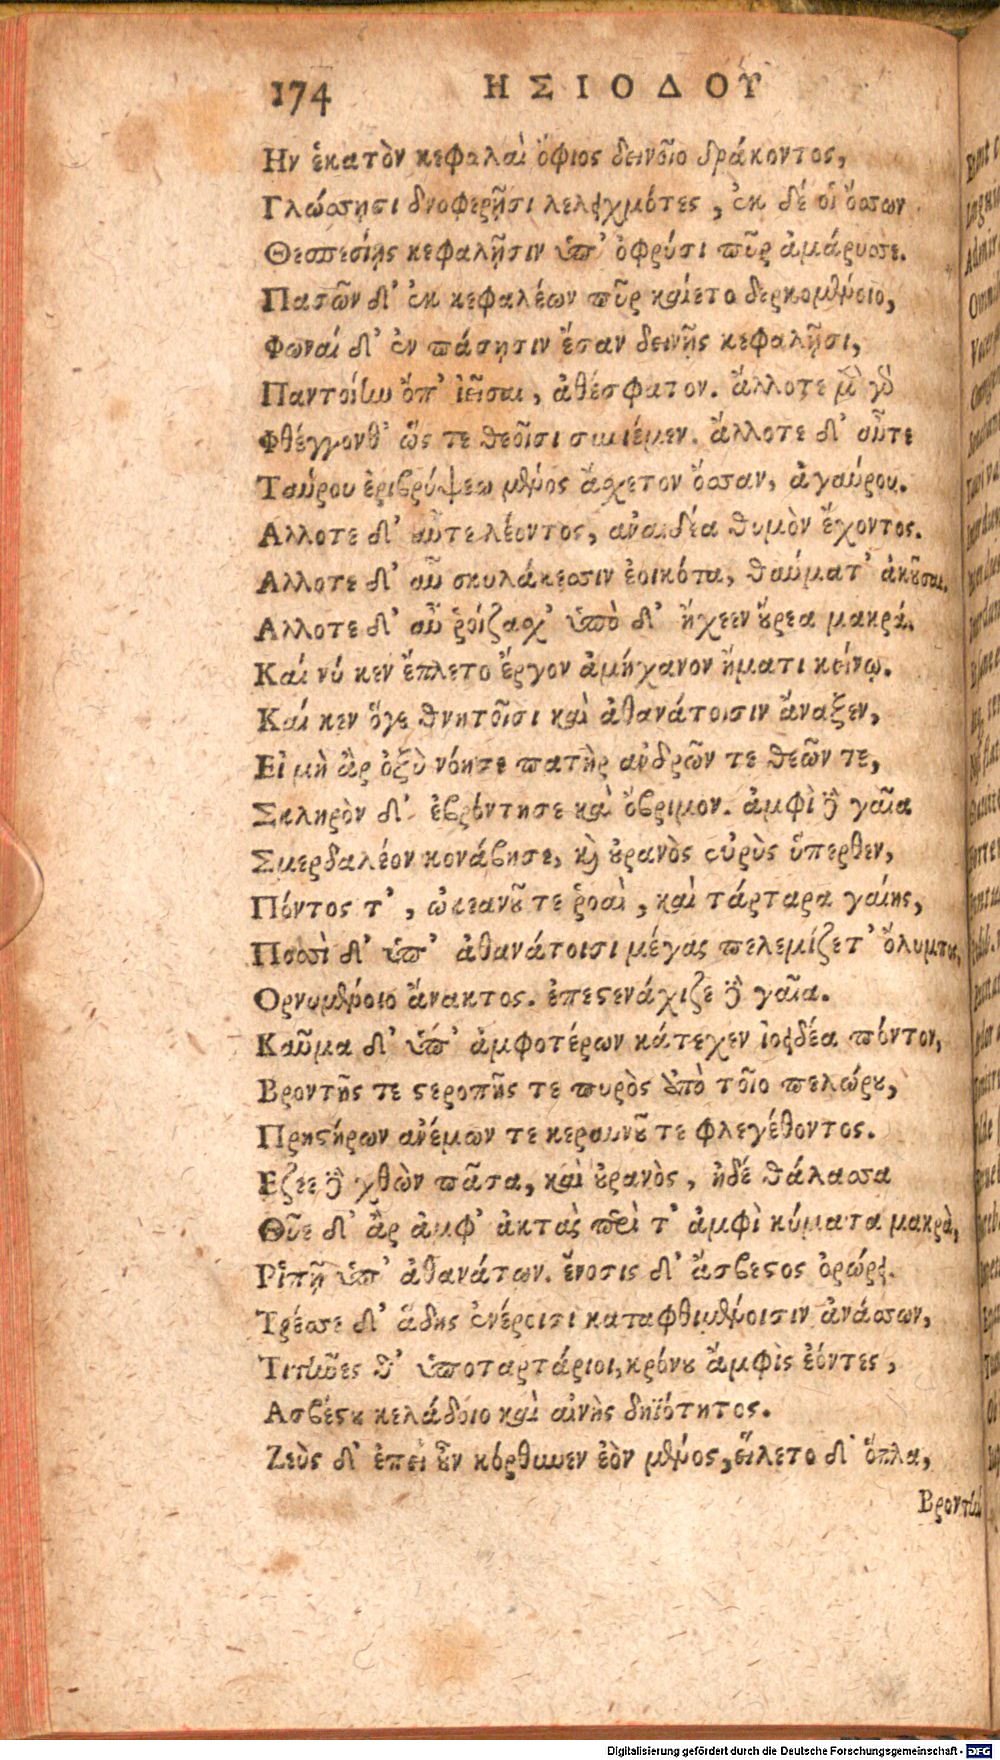 174 ΗΣΙΟΔΟΥ
Ην ἑκατὸν κεφαλαὶ ὄφιος δεινοῖο δράκοντος,
Γλώσσησι δνοφερῇσι λελειχμότες, ἐκ δέ οἱ ὄσσων
Θεσπεσίης κεφαλῇσιν ὑπ' ὀφρύσι πῦρ ἀμάρυσσε.
Πασῶν δ' ἐκ κεφαλέων πῦρ καίετο δερκομένοιο,
Φωναί δ' ἐν πάσησιν ἔσαν δεινῇς κεφαλῇσι,
Παντοίην ὄπ' ἰεῖσαι, ἀθέσφατον. ἄλλοτε μὲν γὰρ
Φθέγγονθ' ὥς τε θεοῖσι συνιέμεν. ἄλλοτε δ' αὖτε
Ταύρου ἐριβρύχεω μένος ἄσχετον ὄσσαν, ἀγαύρου.
Αλλοτε δ' αὖτε λέοντος, ἀναιδέα θυμὸν ἔχοντος.
Αλλοτε δ' αὖ σκυλάκεσσιν ἐοικότα, θαύματ' ἀκοῦσαι.
Αλλοτε δ' αὖ ῥοίζασχ' ὑπὸ δ' ἤχεεν οὔρεα μακρά.
Καί νύ κεν ἔπλετο ἔργον ἀμήχανον ἤματι κείνῳ.
Καί κεν ὅγε θνητοῖσι καὶ ἀθανάτοισιν ἄναξεν,
Εἰ μὴ ἂρ ὀξὺ νόησε πατὴρ ἀνδρῶν τε θεῶν τε,
Σκληρὸν δ' ἐβρόντησε καὶ ὄβριμον. ἀμφὶ δὲ γαῖα
Σμερδαλέον κονάβησε, καὶ οὐρανὸς εὐρὺς ὕπερθεν,
Πόντος τ', ὠκεανοῦ τε ῥοαὶ, καὶ τάρταρα γαίης,
Ποσσὶ δ' ὑπ' ἀθανάτοισι μέγας πελεμίζετ' ὄλυμπος,
Ορνυμένοιο ἄνακτος. ἐπεστενάχιζε δὲ γαῖα.
Καῦμα δ' ὑπ' ἀμφοτέρων κάτεχεν ἰοειδέα πόντον,
Βροντῆς τε στεροπῆς τε πυρὸς ἀπὸ τοῖο πελώρου,
Πρηστήρων ἀνέμων τε κεραυνοῦ τε φλεγέθοντος.
Εζεε δὲ χθὼν πᾶσα, καὶ οὐρανὸς, ἠδέ θάλασσα
Θῦε δ' ἂρ ἀμφ' ἀκτὰς περὶ τ' ἀμφὶ κύματα μακρὰ,
Ριπῇ ὑπ' ἀθανάτων. ἔνοσις δ' ἄσβεστος ὀρώρει.
Τρέσσε δ' ἅδης ἐνέροισι καταφθιμένοισιν ἀνάσσων,
Τιτῆνες θ' ὑποταρτάριοι, κρόνου ἄμφὶς ἐόντες,
Ασβέστου κελάδοιο καὶ αἰνῆς δηϊότητος.
Ζεὺς δ' ἐπεὶ οὖν κόρθυνεν ἑὸν μένος, εἵλετο δ' ὅπλα,
Βροντήν
Digitalisierung gefördert durch die Deutsche Forschungsgemeinschaft - DFG